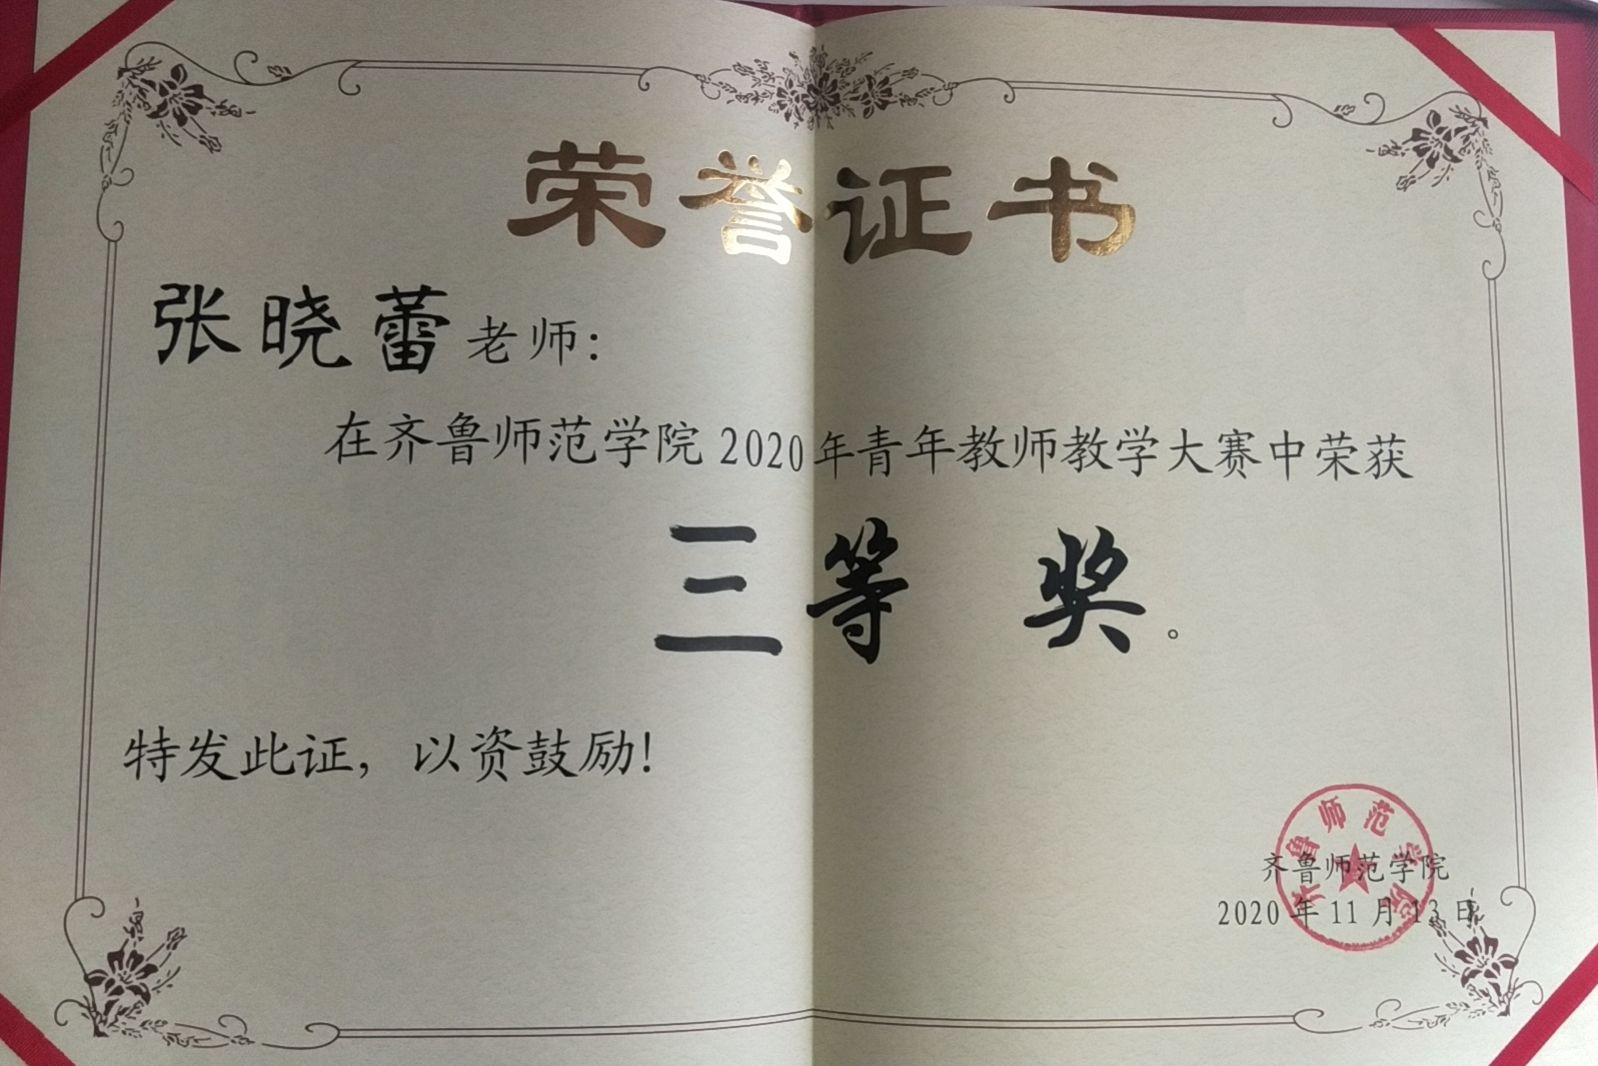 荣誉证书
张晓蕾老师：
在齐鲁师范学院2020年青年教师教学大赛中荣获
三等奖。
特发此证，以资鼓励！
齐鲁师范学院
齐鲁师范学院
2020年11月13日